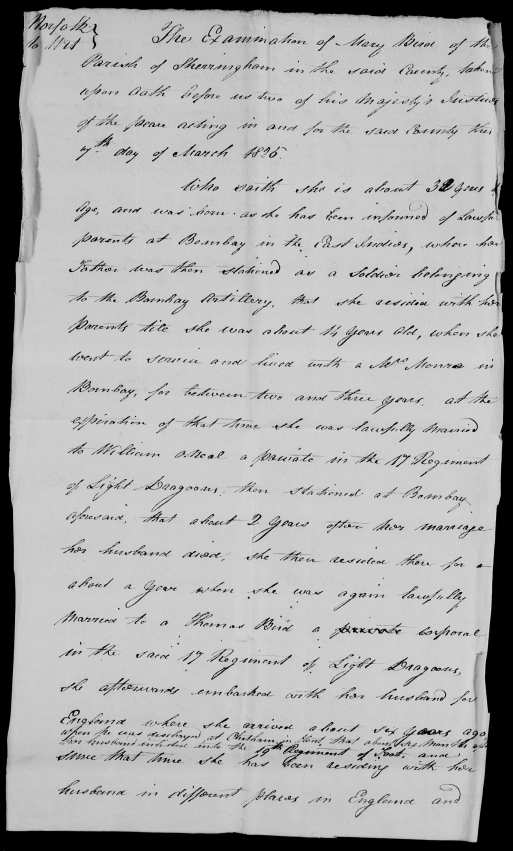 Norfolk }
to Wit }
The Examination of Mary Bird of the
Parish of Sherringham in the said County, taken
upon Oath before us two of his Majesty's Justices
of the peace acting in and for the said County this
7th day of March 1826.
Who saith she is about 32 years
Age, and was born as she has been informed of lawful
parents at Bombay in the East Indies, where her
Father was then stationed as a Soldier belonging
to the Bombay Artillery, that she resided with her
parents till she was about 14 years old, when she
went to service and lived with a Mrs Monro in
Bombay, for between two and three years. at the
expiration of that time she was lawfully married
to William oNeal a private in the 17 Regiment
of Light Dragoons, then stationed at Bombay
aforesaid, that about 2 years after her marriage
her husband died, she then resided there for
about a year when she was again lawfully
Married to a Thomas Bird a private corporal
in the said 17 Regiment of Light Dragoons,
she afterwards embarked with her husband for
England where she arrived about six years ago
when he was discharged at Chatham in Kent, that about six months after
her husband inlisted into the 19th Regiment of Foot, and
since that time she has been residing with her
husband in different places in England and